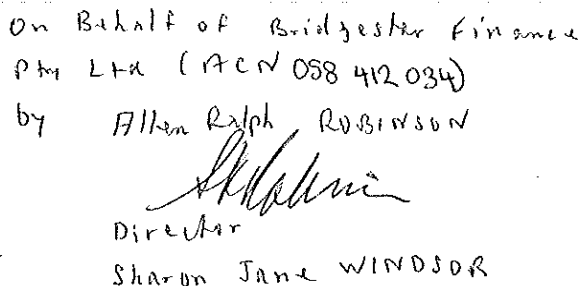 On Behalf of Bridgestar Finance
Pty Ltd (ACN 058 412 034)
by Allen Ralph ROBINSON
Director
Sharon Jane WINDSOR